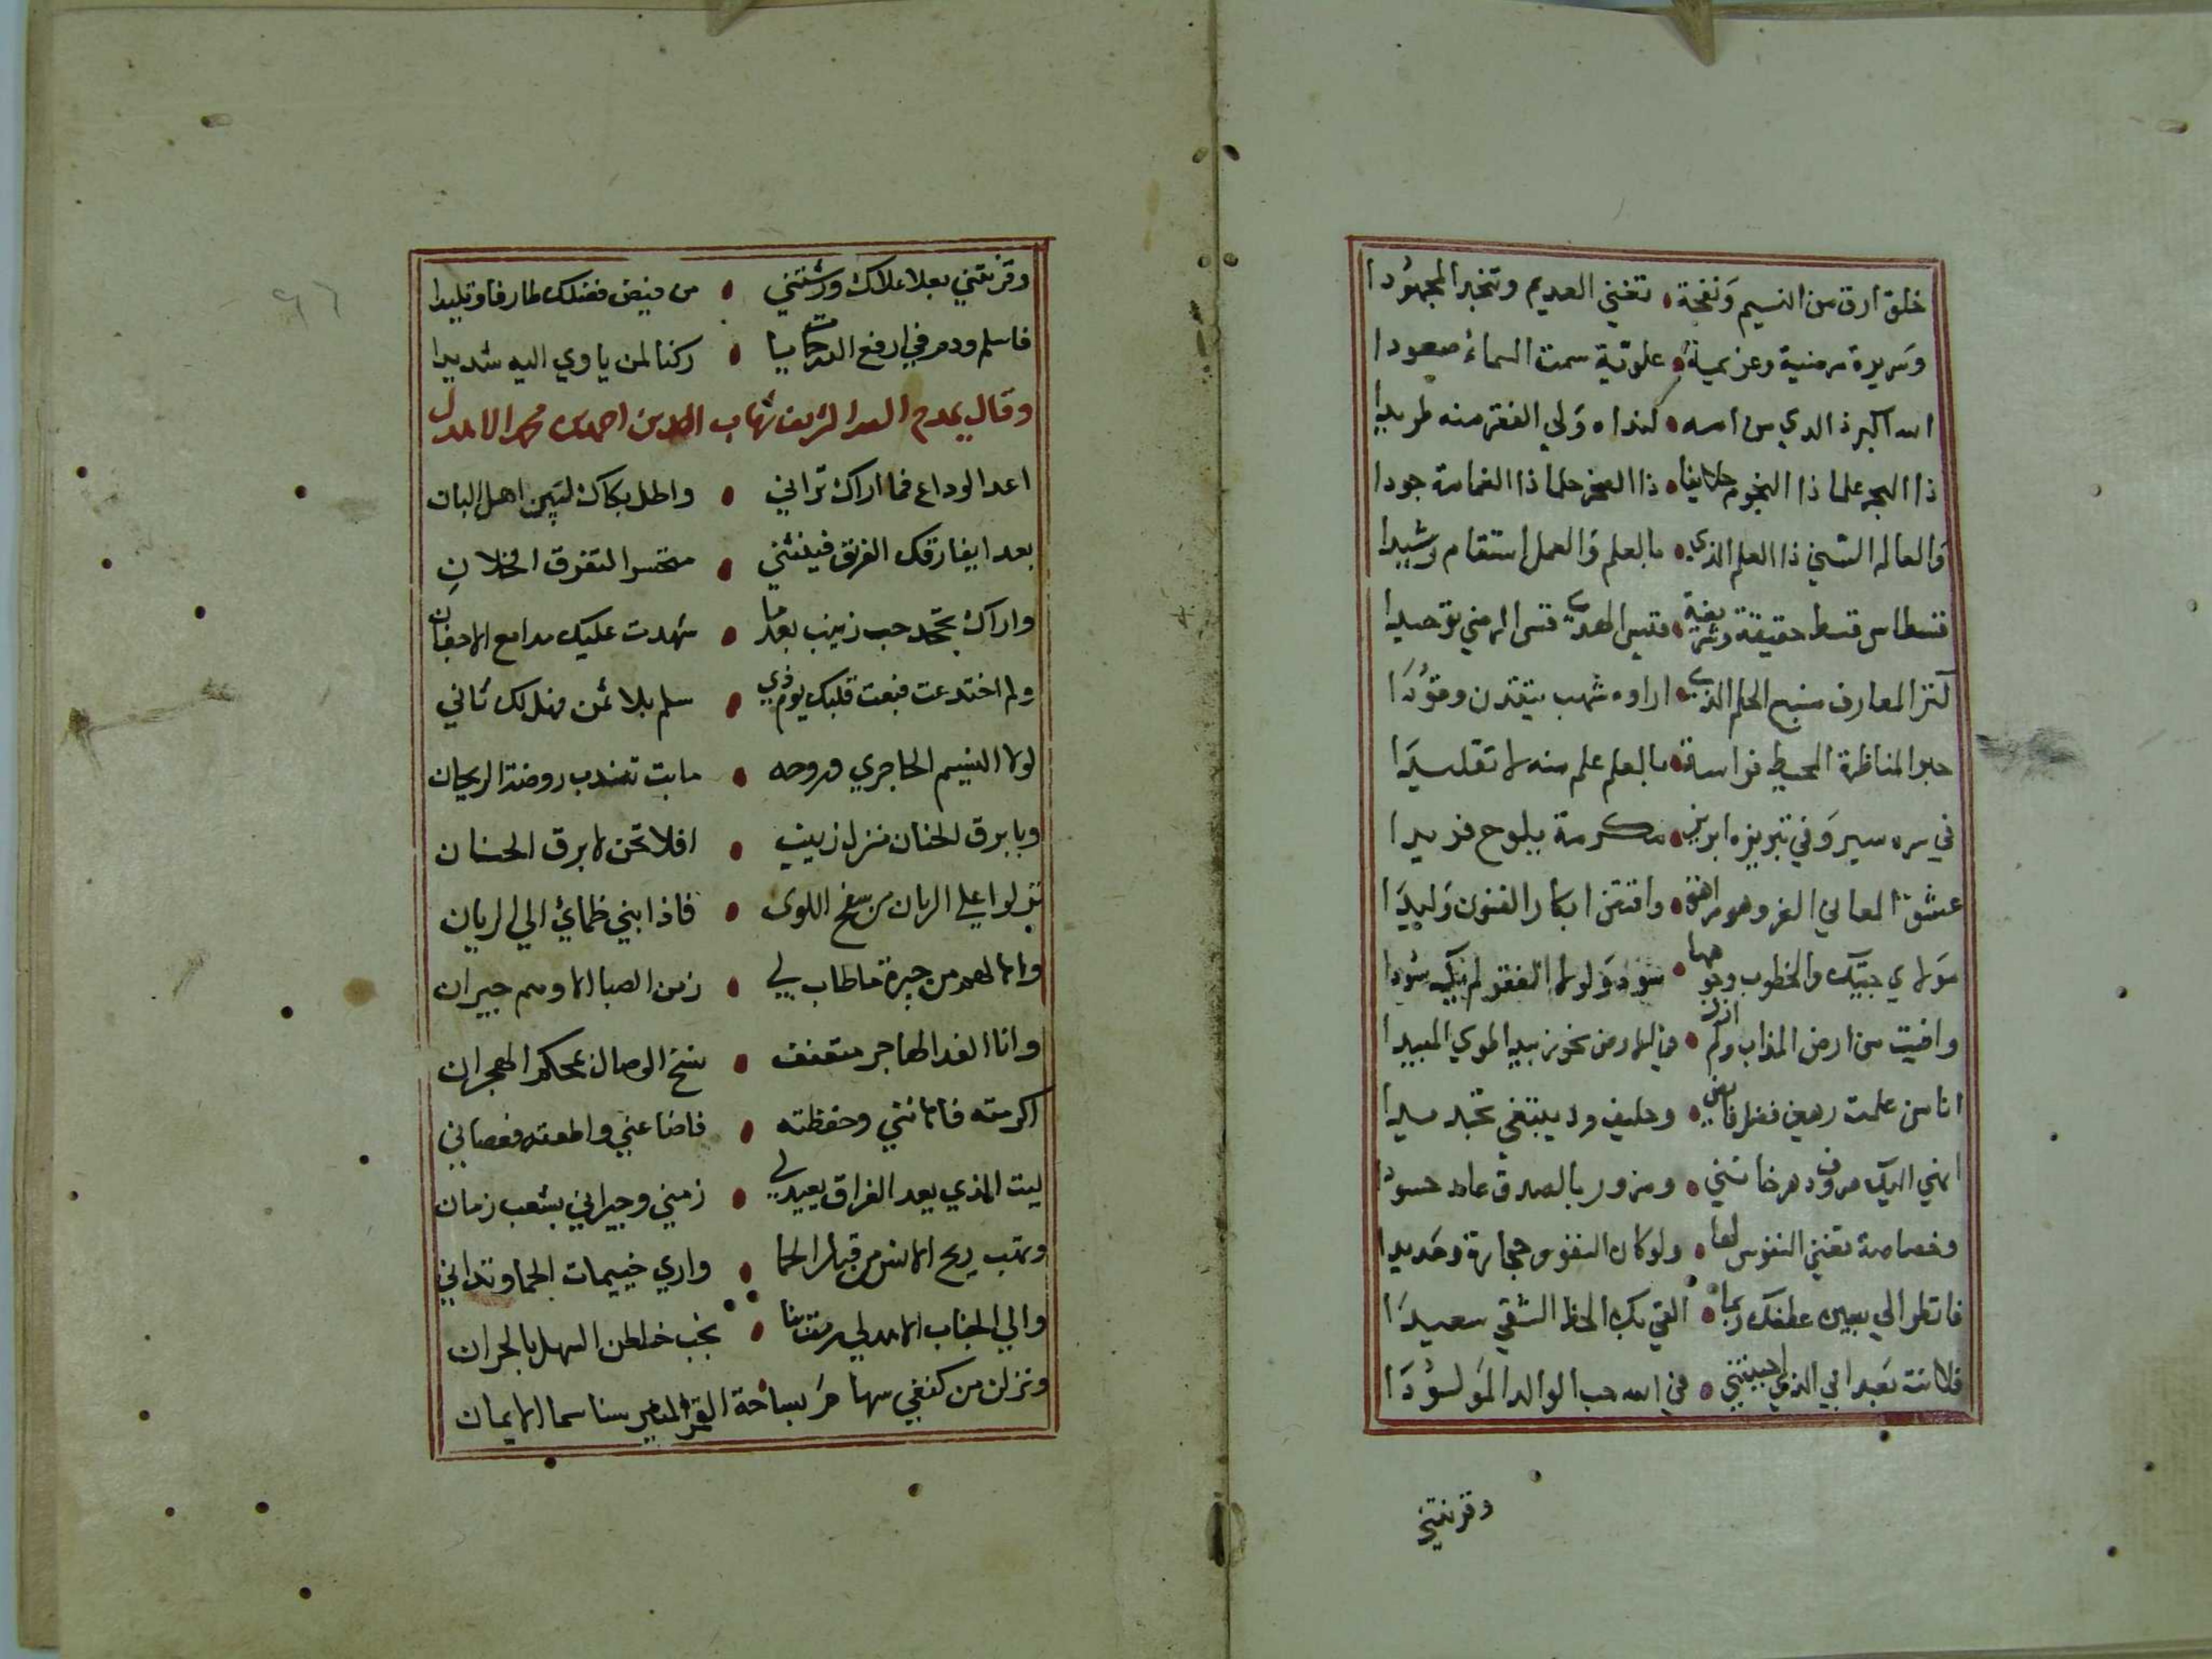 خلق ارق من النسيم ونفحة • تغني العديم وتخبر المجهودا
وسريرة مرضية وعزيمة • علوية سمت السماء صعودا
الله اكبر ذا الذي من امه • لنداه ولي الفقر منه طريدا
ذا البحر علما ذا النجوم خلايقا • ذا الصخر حلما ذا الغمامة جودا
والعالم الشيخ ذا العلم الذي • بالعلم والعمل استقام رشيدا
قسطاس قسط حقيقة وشريعة • قبس الهدى
كنز المعارف منبع الحلم الذي • اراوه شهب يتقدن وقودا
حبر المناظرة المحيط فراسة • بالعلم علم منه لا تقليدا
في سره سر وفي تبريزه ابريز • مكرمة يلوح فريدا
عشق المعالي الغر وهو مراهق • وافتض ابكار الفنون وليدا
مولاي جيتك والخطوب وجوهها • سود ولولا الفقر لم تك سودا
وافيت من ارض المذاب ولم ازل • في الارض
انا من علمت رهين فضل فايض • وحليف ود يبتغي تجديدا
انهي اليك صروف دهر خانني • ومزور بالصدق عاد حسودا
وخصاصة تفني النفوس لها • ولو كان النفوس حجارة وحديدا
فانظر الي بعين عطفك ربما • القي بك الحظ الشقي سعيدا
فلانت بعد ابي الذي احببتني • في الله حب الوالد المولودا
وقرنتني
وقرنتني بعلا علاك ورشتني • من فيض فضلك طارفا وتليدا
فاسلم ودم في ارفع الدرجات يا • ركنا لمن ياوي اليه شديدا
وقال يمدح السيد الشريف شهاب الدين احمد بن محمد الاهدل
اعد الوداع فما اراك تراني • واطل بكاك لبين اهل البان
بعدا يفارقك الفريق فينثني • متحسرا لتفرق الخلان
واراك تجحد حب زينب بعدما • شهدت عليك مدامع الاجفان
ولم اختدعت فبعت قلبك يوم ذي • سلم بلا ثمن فهل لك ثاني
لولا النسيم الحاجري وروحه • ما بت تندب روضة الريحان
وبابرق الحنان منزل زينب • افلا تحن لابرق الحنان
نزلوا علي الريان من سفح اللوى • فاذا بني ظمائي الي الريان
ولا لعهد من جيرة ما طاب لي • زمن الصبا الا وهم جيران
وانا الفدا لهاجر متعفف • نسخ الوصال بمحكم الهجران
اكرمته فاهانني وحفظته • فاضاعني واطعته فعصاني
ليت الذي بعد الفراق يعيد لي • زمني وجيراني بشعب زمان
وتهب ريح الانس من قبل الحما • واري خييمات الحما وتداني
والي الجناب الاهدلي سرت بنا • نجب خلطن السهل بالحزان
ونزلن من كنفي سهام بساحة القمر المنير سنا سما الايمان